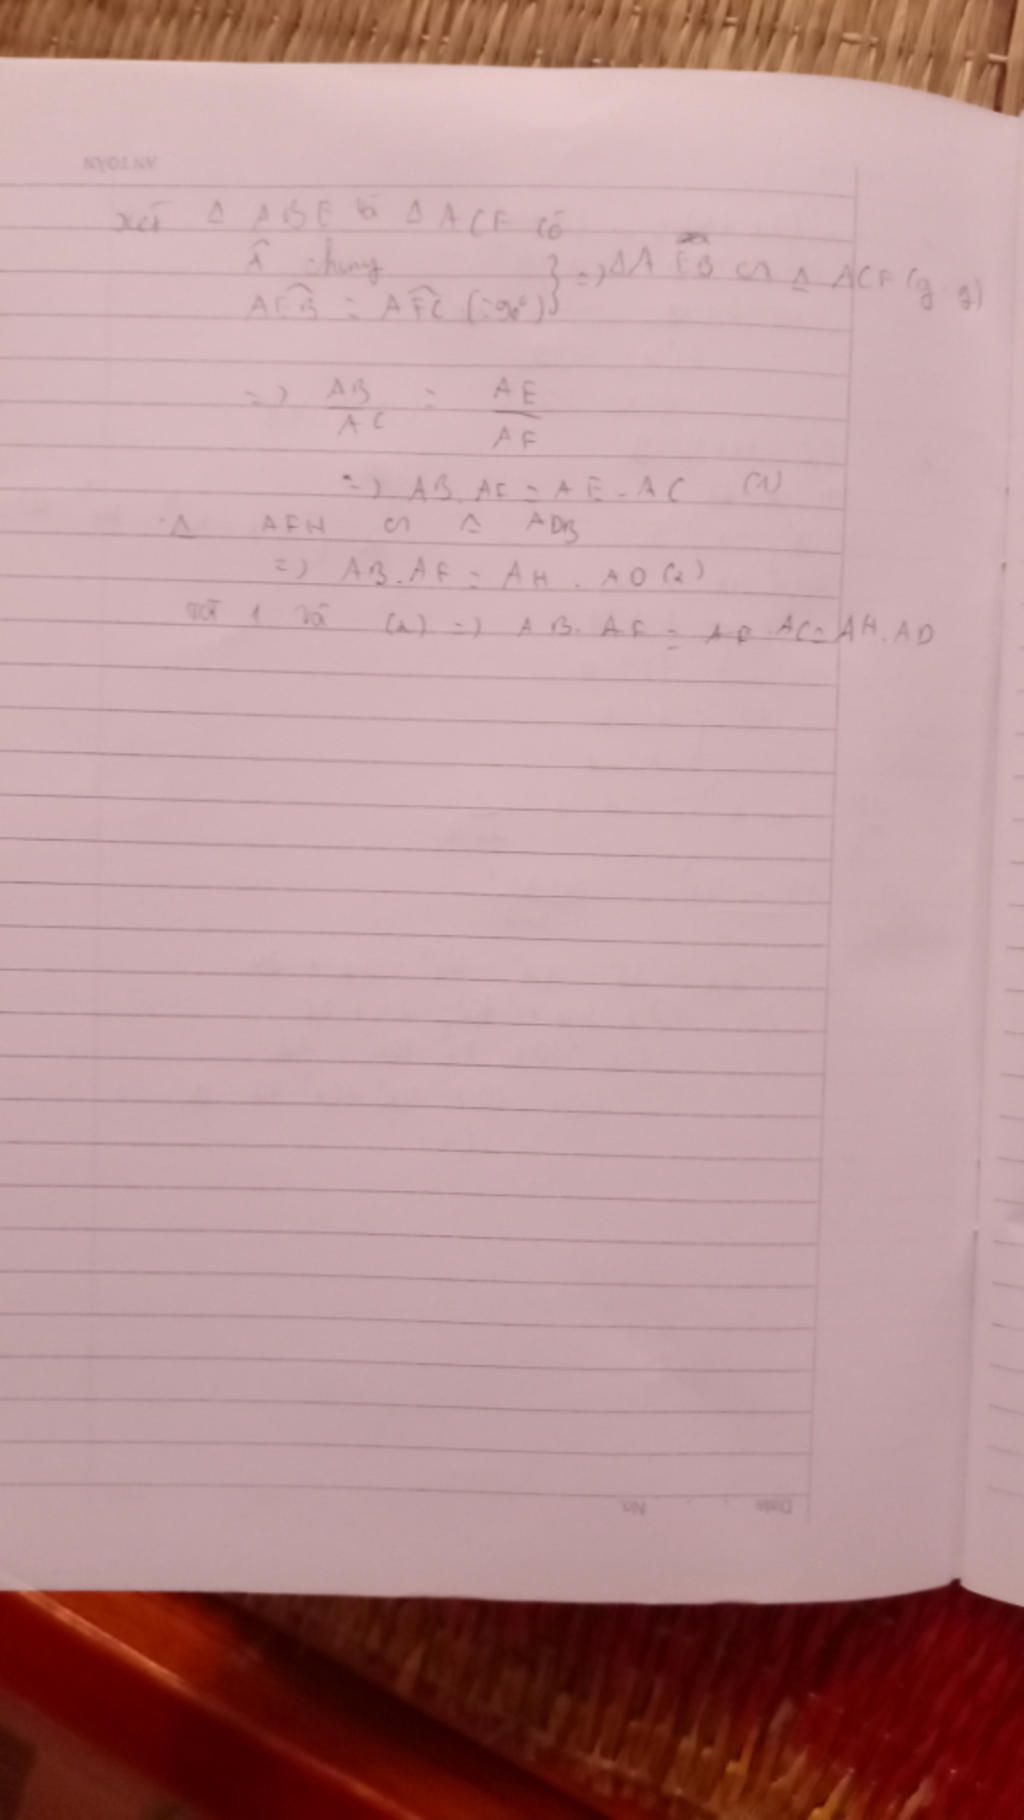 AN TOÀN
xét Δ ABE và Δ ACF có
Â chung
AÊB = AF̂C (=90°) } => ΔAEB ∽ Δ ACF (g g)
=> AB/AC = AE/AF
=> AB.AF = AE.AC (1)
Δ AFH ∽ Δ ADB
=> AB.AF = AH.AD (2)
từ 1 và (2) => AB.AF = AE.AC = AH.AD
No. Date